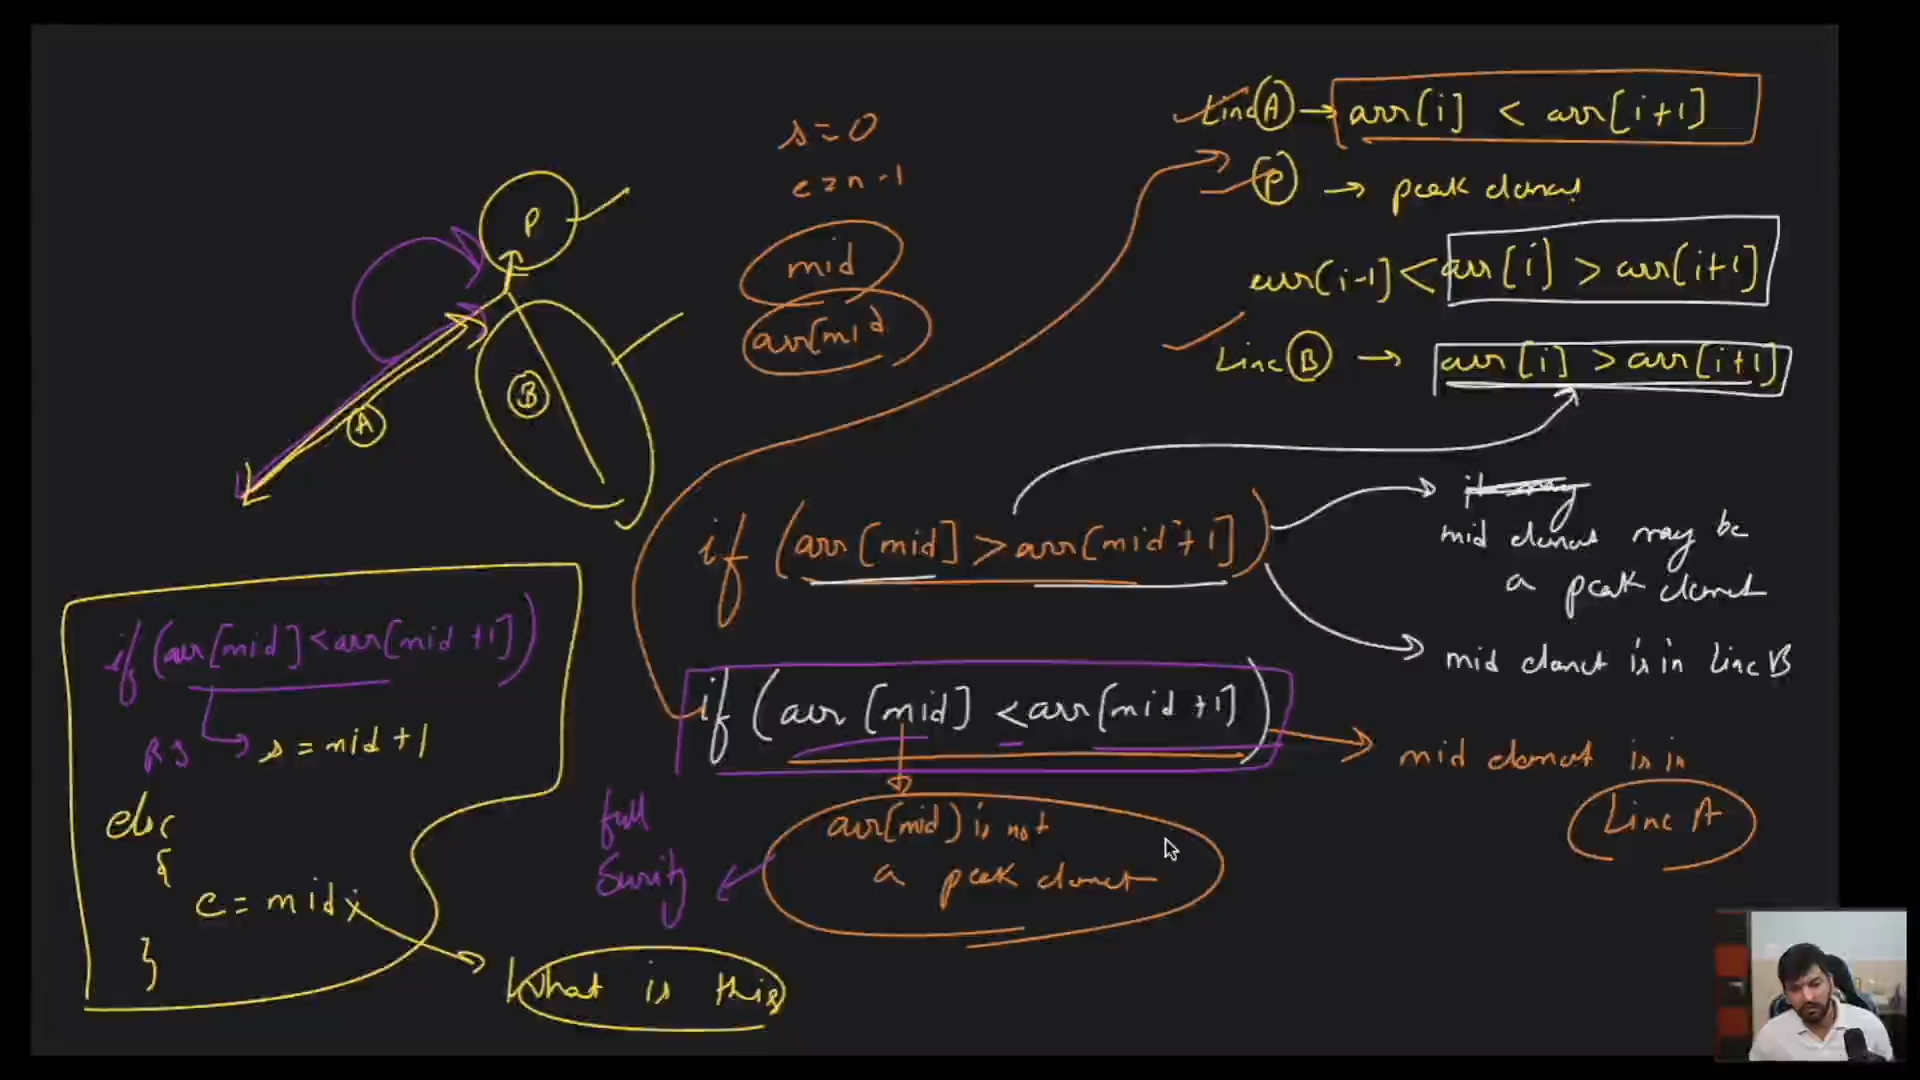 s=0
e=n-1
mid
arr[mid
Line A → arr[i] < arr[i+1]
P → peak element
arr[i-1] < arr[i] > arr[i+1]
Line B → arr[i] > arr[i+1]
P
A
B
if (arr[mid] > arr[mid+1])
mid element may be
a peak element
mid element is in Line B
if (arr[mid] < arr[mid+1])
mid element is in
Line A
arr[mid] is not
a peak element
full
Surity
if (arr[mid] < arr[mid+1])
RS → s = mid+1
else
{
e = mid;
}
What is this